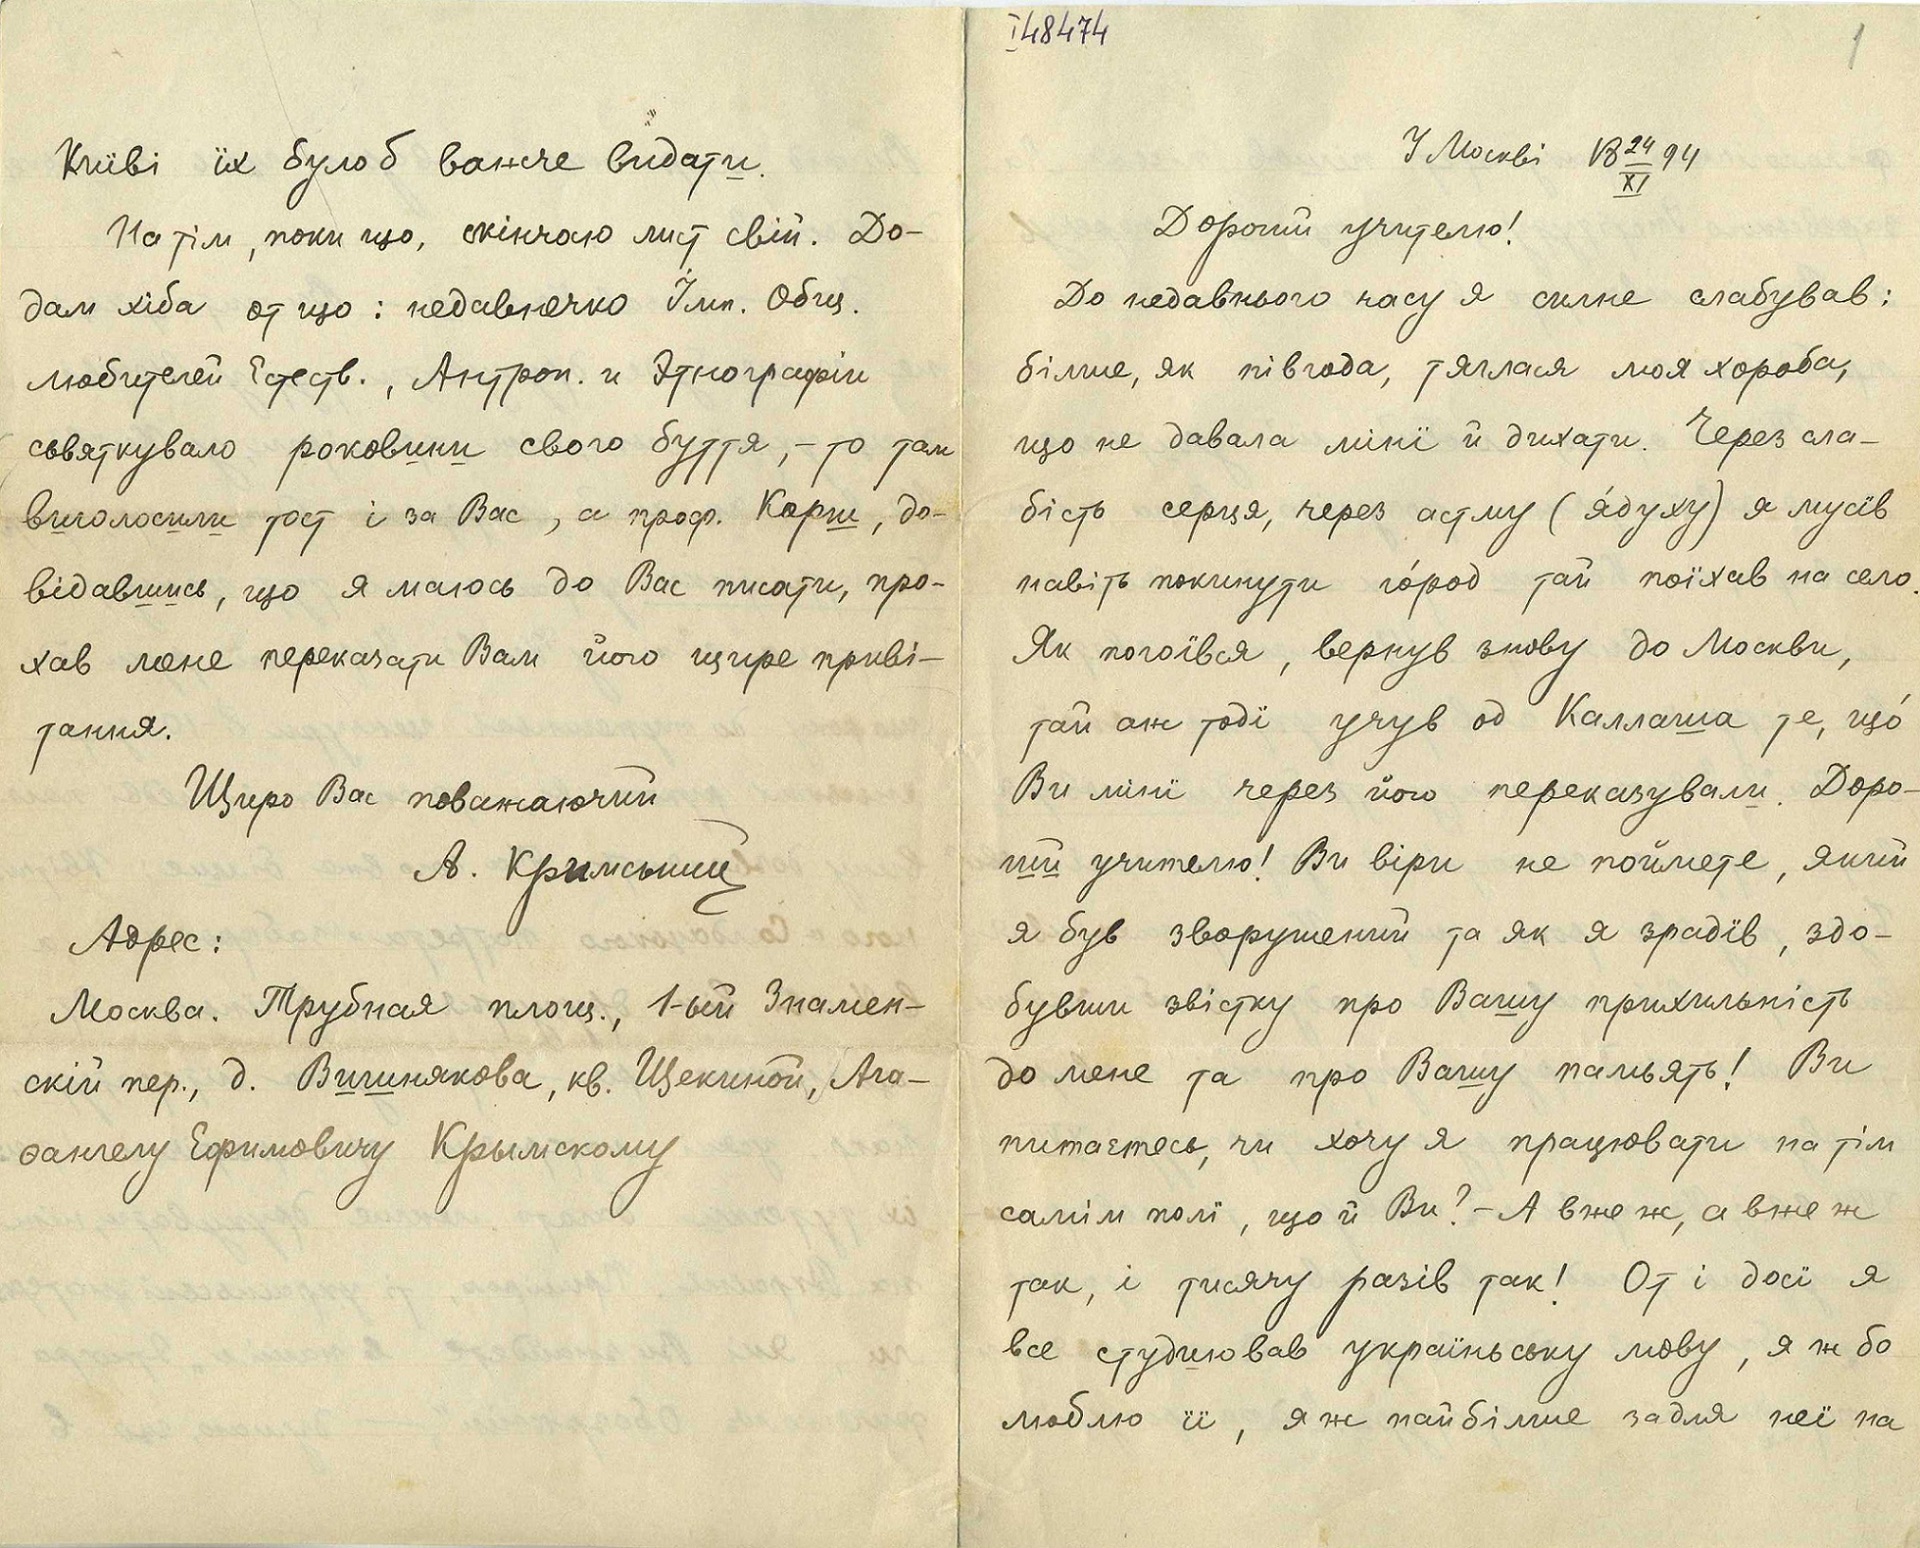 І 48474
1
У Москві 18 24/XI 94
Дорогий учителю!
До недавнього часу я силне слабував:
більше, як півгода, тяглася моя хороба,
що не давала мінї й дихати. Через сла-
бість серця, через астму (я́духу) я мусїв
навіть покинути го́род тай поїхав на село.
Як погоївся, вернув знову до Москви,
тай аж тодї учув од Каллаша те, що́
Ви мінї через його переказували. Доро-
гий учителю! Ви віри не поймете, який
я був зворушений та як я зрадїв, здо-
бувши звістку про Вашу прихильність
до мене та про Вашу памьять! Ви
питаєтесь, чи хочу я працювати на тім
самім полї, що й Ви? – А вже ж, а вже ж
так, і тисячу разів так! От і досї я
все студиював україньську мову, я ж бо
люблю її, я ж найбільше задля неї на
Київі їх було б важче видати.
На тім, поки що, скінчаю лист свій. До-
дам хіба от що: недавнечко Імп. Общ.
любителей Естеств., Антроп. и Этнографіи
сьвяткувало роковини свого буття, – то там
виголосили тост і за Вас, а проф. Корш, до-
відавшись, що я маюсь до Вас писати, про-
хав мене переказати Вам його щире приві-
тання.
Щиро Вас поважаючий
А. Кримський
Адрес:
Москва. Трубная площ., 1-ый Знамен-
скій пер., д. Вишнякова, кв. Щекиной, Ага-
ѳангелу Ефимовичу Крымскому